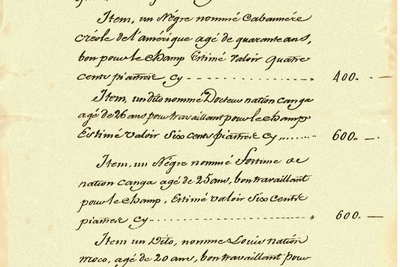 Item, un Négre nommé Cabaunére
créole de l'amérique agé de quarante ans,
bon pour le champ Estimé valoir quatre
cents piastres cy 400.
Item, un dito nommé Docteur nation canga
agé de 26 ans pour travaillant pour le champ
Estimé valoir six cents piastres cy 600.
Item, un Négre nommé Fortune de
nation canga agé de 25 ans, bon travaillant
pour le champ, Estimé valoir six cents
piastres cy 600.
Item un Dito, nommé Louis nation
moco, agé de 20 ans, bon travaillant pour